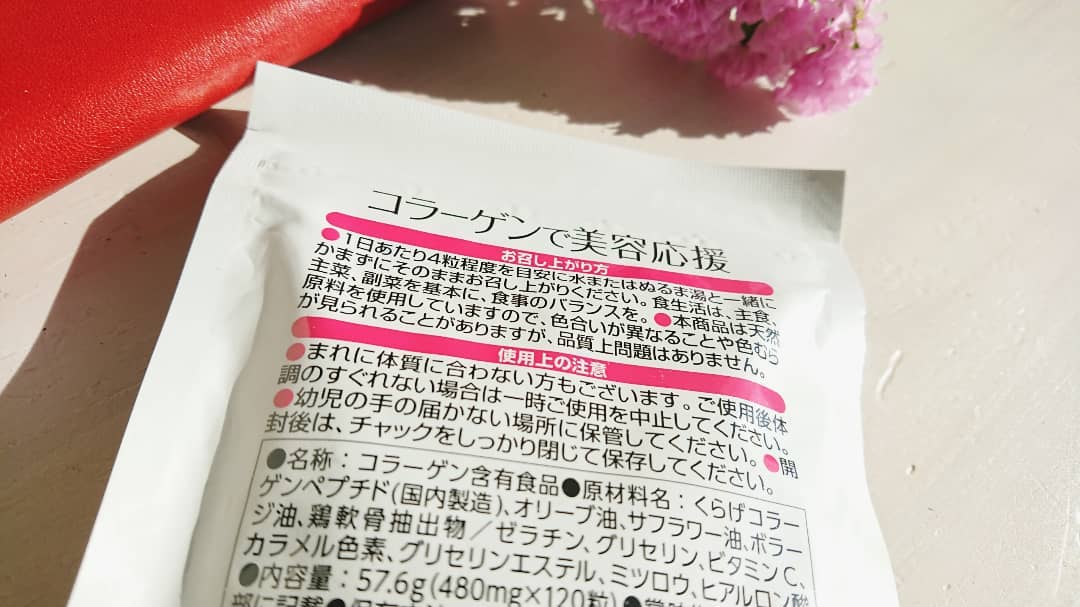 コラーゲンで美容応援
お召し上がり方
●1日あたり4粒程度を目安に水またはぬるま湯と一緒に
かまずにそのままお召し上がりください。食生活は、主食、
主菜、副菜を基本に、食事のバランスを。●本商品は天然
原料を使用していますので、色合いが異なることや色むら
が見られることがありますが、品質上問題はありません。
使用上の注意
●まれに体質に合わない方もございます。ご使用後体
調のすぐれない場合は一時ご使用を中止してください。
●幼児の手の届かない場所に保管してください。●開
封後は、チャックをしっかり閉じて保存してください。
●名称：コラーゲン含有食品●原材料名：くらげコラー
ゲンペプチド(国内製造)、オリーブ油、サフラワー油、ボラー
ジ油、鶏軟骨抽出物／ゼラチン、グリセリン、ビタミンC、
カラメル色素、グリセリンエステル、ミツロウ、ヒアルロン酸
●内容量：57.6g(480mg×120粒)
部に記載